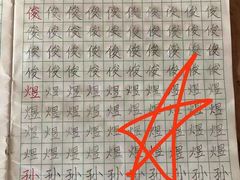 俊俊俊俊俊俊俊俊俊
俊俊俊俊俊俊俊俊俊
俊俊俊俊俊俊俊俊俊
俊俊俊俊俊俊俊俊俊
煜煜煜煜煜煜煜煜煜
煜煜煜煜煜煜煜煜煜
煜煜煜煜煜煜煜煜煜
煜煜煜煜煜煜煜煜煜
孙孙孙孙孙孙孙孙孙